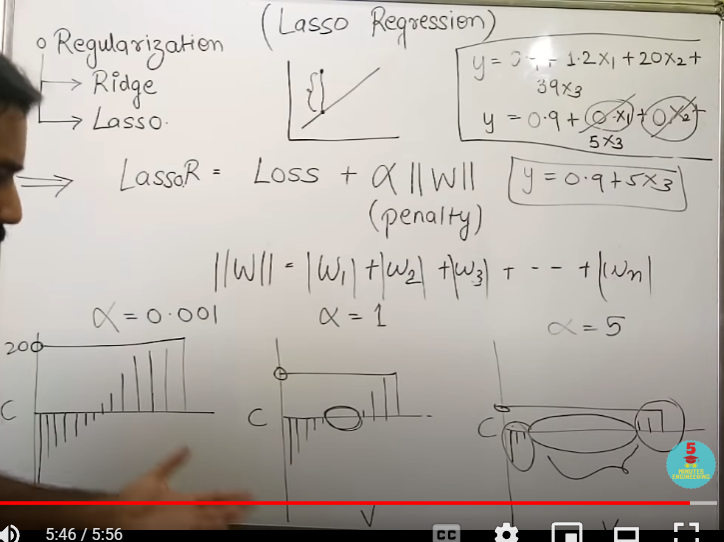 (Lasso Regression)
Regularization
→ Ridge
→ Lasso.
y = 0.9 + 1.2x₁ + 20x₂ +
39x₃
y = 0.9 + 0.x₁ + 0.x₂ +
5x3
y = 0.9 + 5x3
⇒ LassoR = Loss + α ||W||
(penalty)
||W|| = |W₁| + |W₂| + |W₃| + -- + |Wn|
α = 0.001
α = 1
α = 5
20
C
C
C
V
5
MINUTES
ENGINEERING
5:46 / 5:56
CC